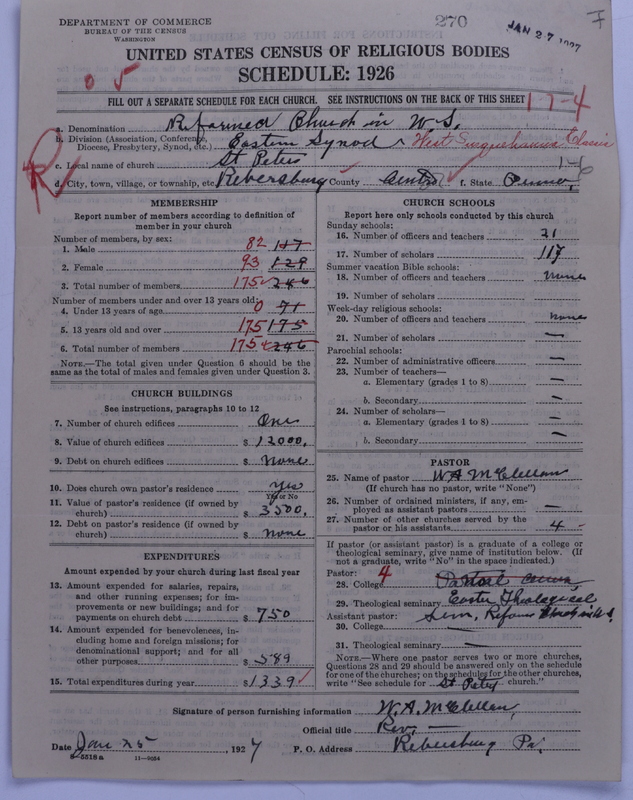 DEPARTMENT OF COMMERCE
BUREAU OF THE CENSUS
WASHINGTON
270
JAN 27 1927
7
UNITED STATES CENSUS OF RELIGIOUS BODIES
SCHEDULE: 1926
0 5
FILL OUT A SEPARATE SCHEDULE FOR EACH CHURCH. SEE INSTRUCTIONS ON THE BACK OF THIS SHEET
17-4
R
a. Denomination Reformed Church in U.S.
b. Division (Association, Conference, Diocese, Presbytery, Synod, etc.) Eastern Synod - West Susquehanna Classis
c. Local name of church St Peters
1-6
d. City, town, village, or township, etc. Rebersburg County Centre f. State Penna.
MEMBERSHIP
Report number of members according to definition of
member in your church
Number of members, by sex:
1. Male 82 117
2. Female 93 129
3. Total number of members 175 246
Number of members under and over 13 years old:
4. Under 13 years of age 0 71
5. 13 years old and over 175 175
6. Total number of members 175 246
NOTE.—The total given under Question 6 should be
same as the total of males and females given under Question 3.
CHURCH BUILDINGS
See instructions, paragraphs 10 to 12
7. Number of church edifices One
8. Value of church edifices $ 12000.
9. Debt on church edifices $ None
10. Does church own pastor's residence Yes
Yes or No
11. Value of pastor's residence (if owned by
church) $ 3500.
12. Debt on pastor's residence (if owned by
church) $ none
EXPENDITURES
Amount expended by church during last fiscal year
13. Amount expended for salaries, repairs,
and other running expenses; for im-
provements or new buildings; and for
payments on church debt $ 750
14. Amount expended for benevolences, in-
cluding home and foreign missions; for
denominational support; and for all
other purposes $ 589
15. Total expenditures during year $ 1339
CHURCH SCHOOLS
Report here only schools conducted by this church
Sunday schools:
16. Number of officers and teachers 21
17. Number of scholars 117
Summer vacation Bible schools:
18. Number of officers and teachers none
19. Number of scholars
Week-day religious schools:
20. Number of officers and teachers none
21. Number of scholars —
Parochial schools:
22. Number of administrative officers —
23. Number of teachers—
a. Elementary (grades 1 to 8) —
b. Secondary —
24. Number of scholars—
a. Elementary (grades 1 to 8) —
b. Secondary —
PASTOR
25. Name of pastor W A McClellan
(If church has no pastor, write "None")
26. Number of ordained ministers, if any, em-
ployed as assistant pastors —
27. Number of other churches served by the
pastor or his assistants 4 -
If pastor (or assistant pastor) is a graduate of a college or
theological seminary, give name of institution below. (If
not a graduate, write "No" in the space indicated.)
Pastor: 4
28. College
29. Theological seminary Easter Theological
Assistant pastor: Sem, Reformed Church in U.S.
30. College
31. Theological seminary —
NOTE.—Where one pastor serves two or more churches,
Questions 28 and 29 should be answered only on the schedule
for one of the churches; on the schedules for the other churches,
write "See schedule for St Peters church."
Signature of person furnishing information W.A. McClellan,
Official title Rev.
Date Jan 25, 1927 P. O. Address Rebersburg Pa.
8-5518a 11-9034